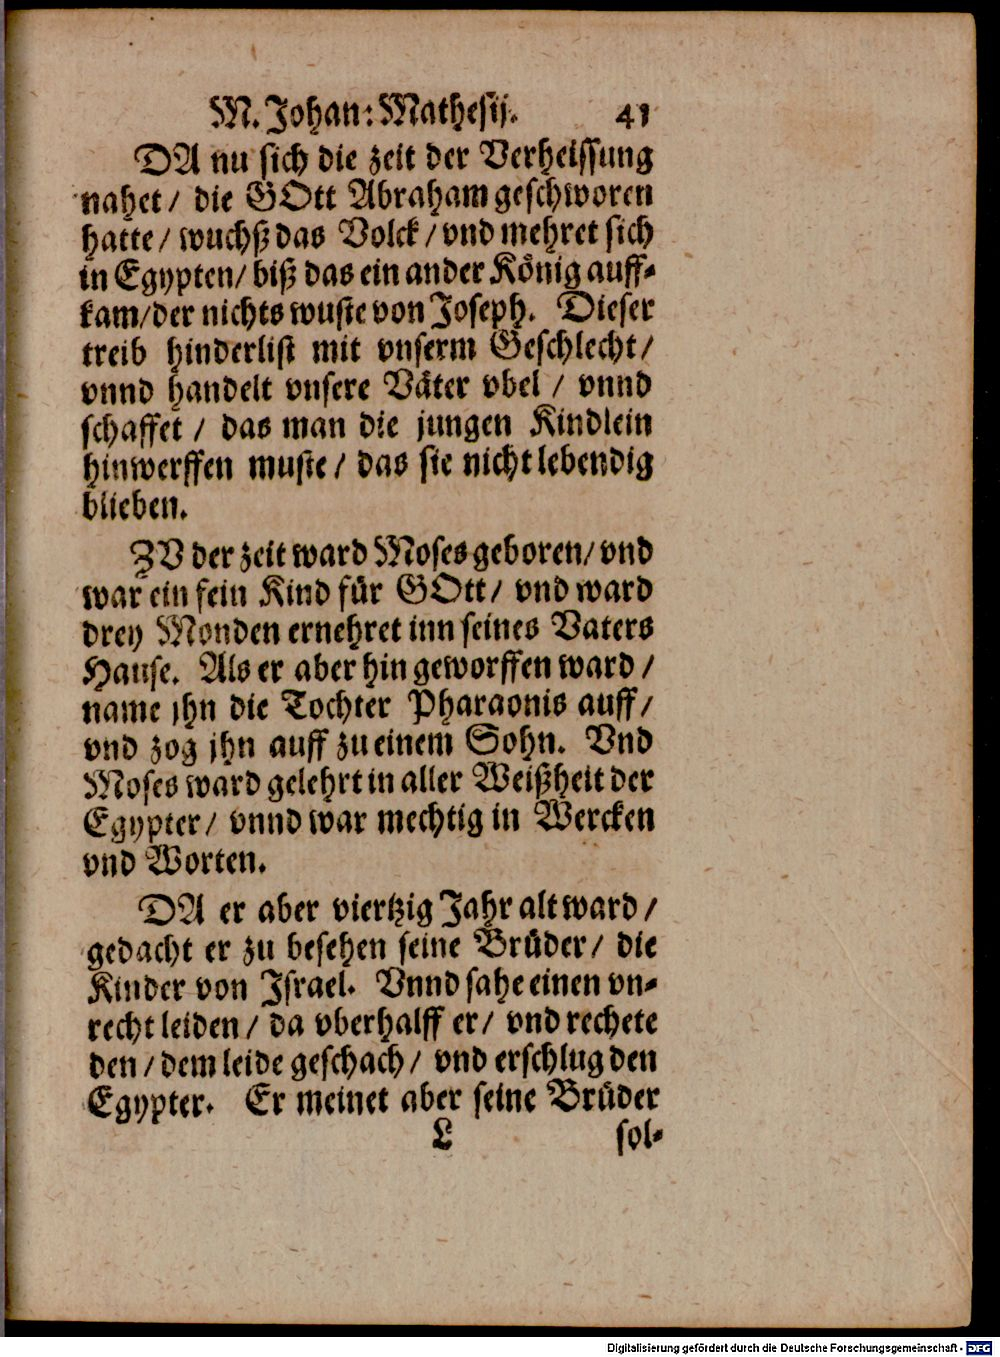 M. Johan: Mathesij. 41
DA nu sich die zeit der Verheissung
nahet / die GOtt Abraham geschworen
hatte / wuchß das Volck / vnd mehret sich
in Egypten / biß das ein ander König auff-
kam / der nichts wuste von Joseph. Dieser
treib hinderlist mit vnserm Geschlecht /
vnnd handelt vnsere Väter vbel / vnnd
schaffet / das man die jungen Kindlein
hinwerffen muste / das sie nicht lebendig
blieben.
ZV der zeit ward Moses geboren / vnd
war ein fein Kind für GOtt / vnd ward
drey Monden ernehret inn seines Vaters
Hause. Als er aber hin geworffen ward /
name jhn die Tochter Pharaonis auff /
vnd zog jhn auff zu einem Sohn. Vnd
Moses ward gelehrt in aller Weißheit der
Egypter / vnnd war mechtig in Wercken
vnd Worten.
DA er aber viertzig Jahr alt ward /
gedacht er zu besehen seine Brüder / die
Kinder von Israel. Vnnd sahe einen vn-
recht leiden / da vberhalff er / vnd rechete
den / dem leide geschach / vnd erschlug den
Egypter. Er meinet aber seine Brüder
L sol-
Digitalisierung gefördert durch die Deutsche Forschungsgemeinschaft - DFG